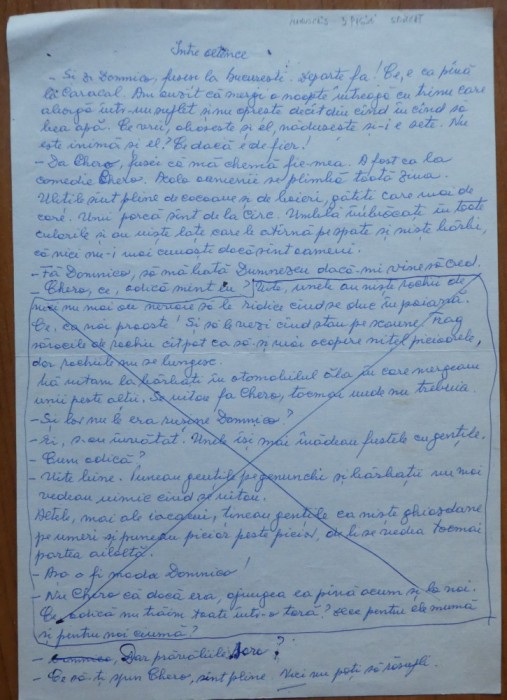 Între oltence
- Și zi Domnico, fuseși la București. Departe fa! Ce, e ca pînă
la Caracal. Am auzit că mergi o noapte întreagă cu trinu care
aleargă într-un suflet și nu oprește decît din cînd în cînd să
bea apă. Ce vrei, obosește și el, nădușește și-i e sete. Nu
este inimă și el? Ce dacă e de fier!
- Da Chero, fusei că mă chemă fie-mea. A fost ca la
comedie Chero. Acolo oamenii se plimbă toată ziua.
Ulițili sînt pline de cocoane și de boieri, gătite care mai de
care. Unii parcă sînt de la circ. Umblă îmbrăcate în toate
culorile și au niște late care le atîrnă pe spate și niște bărbi,
că nici nu-i mai cunoști dacă sînt oameni.
- Fă Domnico, să mă bată Dumnezeu dacă-mi vine să cred.
- Chero, ce, adică mint eu? Uite, unele au niște rochii de
nici nu mai au nevoie să le ridice cînd se duc în poiată.
Ce, ca noi proaste! Și să le vezi cînd stau pe scaune. Trag
săracile de rochii cît pot ca să-și mai acopere nițel picioarele,
dar rochiile nu se lungesc.
Mă uitam la bărbați în otomobilul ăla în care mergeam
unii peste alții. Se uitau fa Chero, tocmai unde nu trebuia.
- Și lor nu le era rușine Domnico?
- Ei, s-au învățat. Unele își mai înădeau fustele cu gențile.
- Cum adică?
- Uite bine. Țineau gențile pe genunchi și bărbații nu mai
vedeau nimic cînd se uitau.
Altele, mai ale dracului, țineau gențile ca niște ghiozdane
pe umeri și puneau picior peste picior, de li se vedea tocmai
partea ailaltă.
- Așa o fi moda Domnico!
- Nu Chero că dacă era, ajungea ca pînă acum și la noi.
Ce, adică nu trăim toate într-o țară? Sau pentru ele mumă
și pentru noi ciumă?
- Dar prăvăliile Doro?
- Ce să-ți spun Chero, sînt pline. Nici nu poți să răsufli.